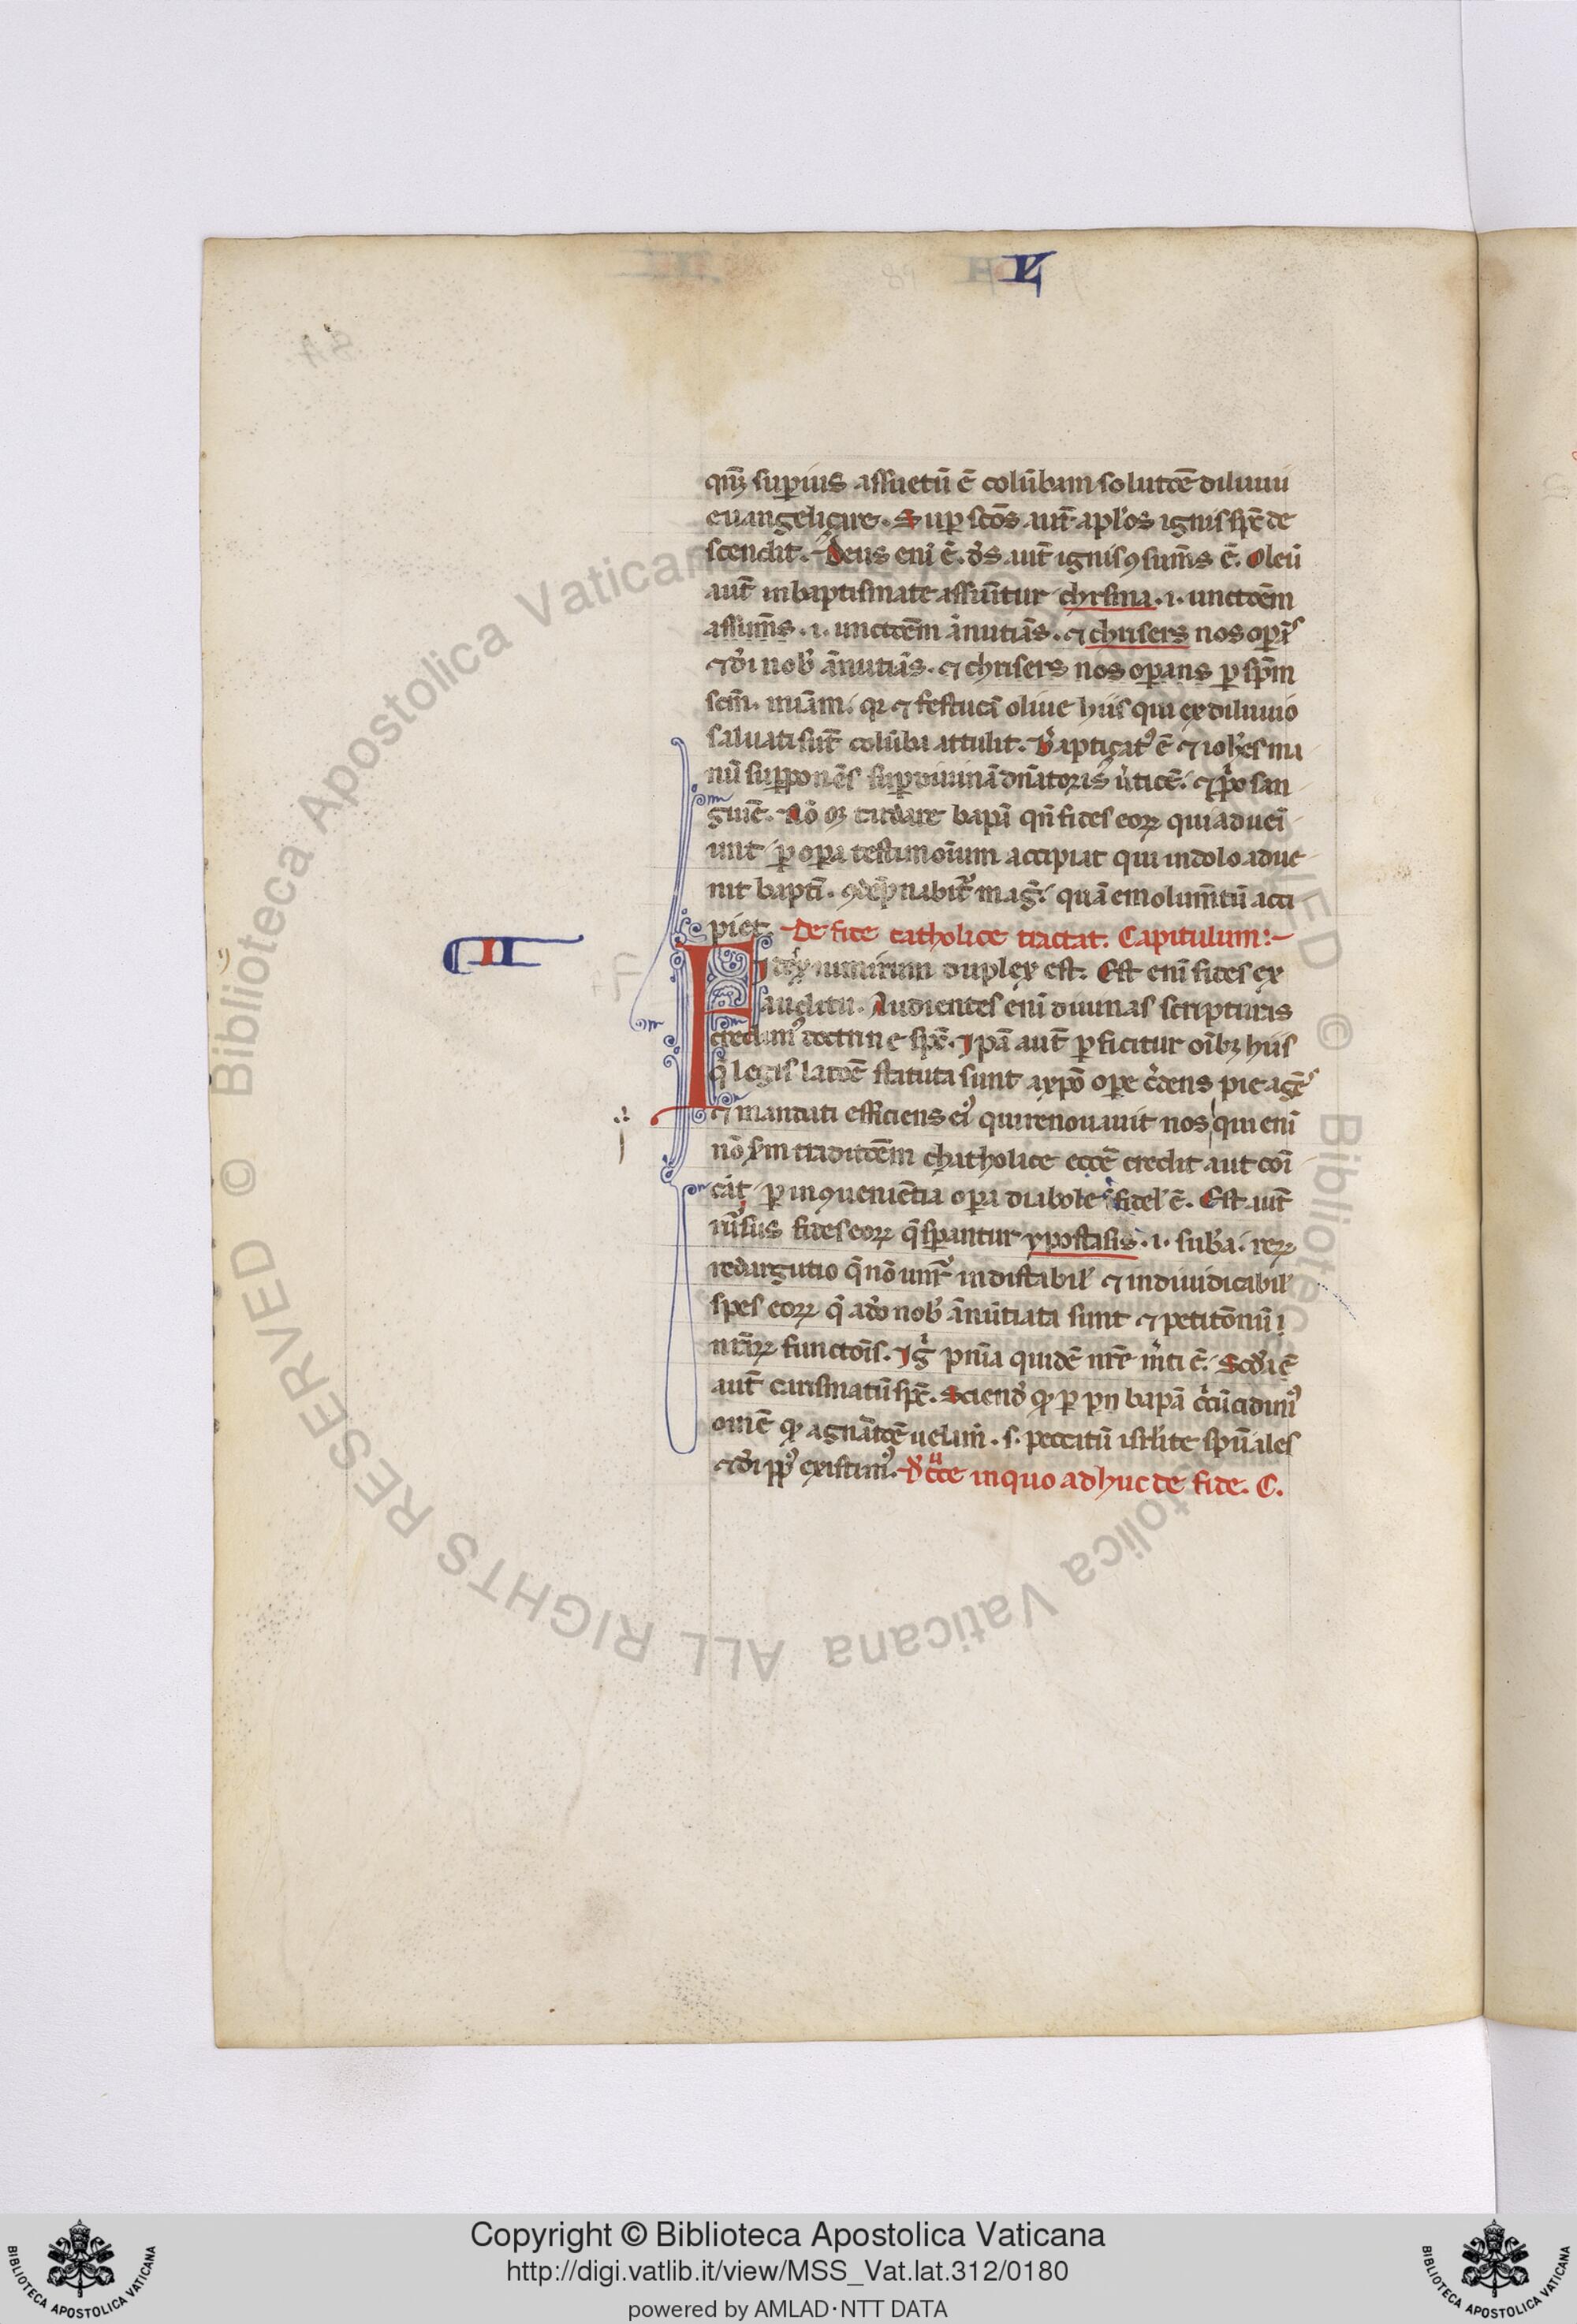 L
qm̄ superius assuetū ē colūbam solutōe diluuii
euangelizare. Sup sctōs aut̄ apl'os ignis spē de
scendit. Deus eni ē. d's aut̄ ignis ɔsum̄s ē. Oleū
aut̄ in baptismate assum̄tur chrisma .i. unctōem
assum̄s .i. unctōem ānutiās. ⁊ chrisers nos opās
⁊ d'i nob' ānutiās. ⁊ chrisers nos operans p sp̄m
scm̄. ⁊ festucā oliue hiis qui ex diluuio
saluati sūt colūba attulit. Baptizat' ē ⁊ ioh'es ma
nū supponēs sup diuinā dn̄atoris u'ticē. ⁊ p'o san
guinē. Nō tardare bap̄m qn̄ fides eoꝝ qui aduen̄
unt p opa testimonium accipiat qui in dolo adue
nit bapt̄m. ɔdēpnabit' maḡ. quā emolum̄tū acci
piet. De fide catholice tractat. Capitulum:
II
Fides nimirum duplex est. Est eni fides ex
auditu. Audientes eni diuinas scripturas
credim' doctrine sp̄c. Ipā aut̄ pficitur oīb; hiis
q̄ legis latōe statuta sunt a xpō ope c'dens pie agēs
⁊ mandati efficiens ei' qui renouauit nos qui eni
nō s'm traditōem chatholice eccē credit aut cōi
cat p inɔuenientia opa diabole īfidel' ē. Est aut̄
rursus fides eoꝝ q̄ spantur ypostasis .i. suba. reꝝ
redargutio q̄ nō un̄t indistabil' ⁊ indiuidicabil'
spes eoꝝ q̄ a d'o nob' ānūtiata sunt ⁊ petitōnū
nr̄aꝝ functōis. Ig' p'ma quidē nr̄e m̄ti ē. Sc'da ē
aut̄ carismatū sp̄c. Sciend' qd' p bap̄m c'cūcidim'
omē qd' a gn̄atōe uelam̄. s. peccatū isrl'ite sp̄uales
⁊ d'i ppl's existim'. in quo adhuc de fide. C.
Copyright © Biblioteca Apostolica Vaticana
http://digi.vatlib.it/view/MSS_Vat.lat.312/0180
powered by AMLAD·NTT DATA
BIBLIOTECA APOSTOLICA VATICANA
BIBLIOTECA APOSTOLICA VATICANA
© Biblioteca Apostolica Vaticana
ALL RIGHTS RESERVED